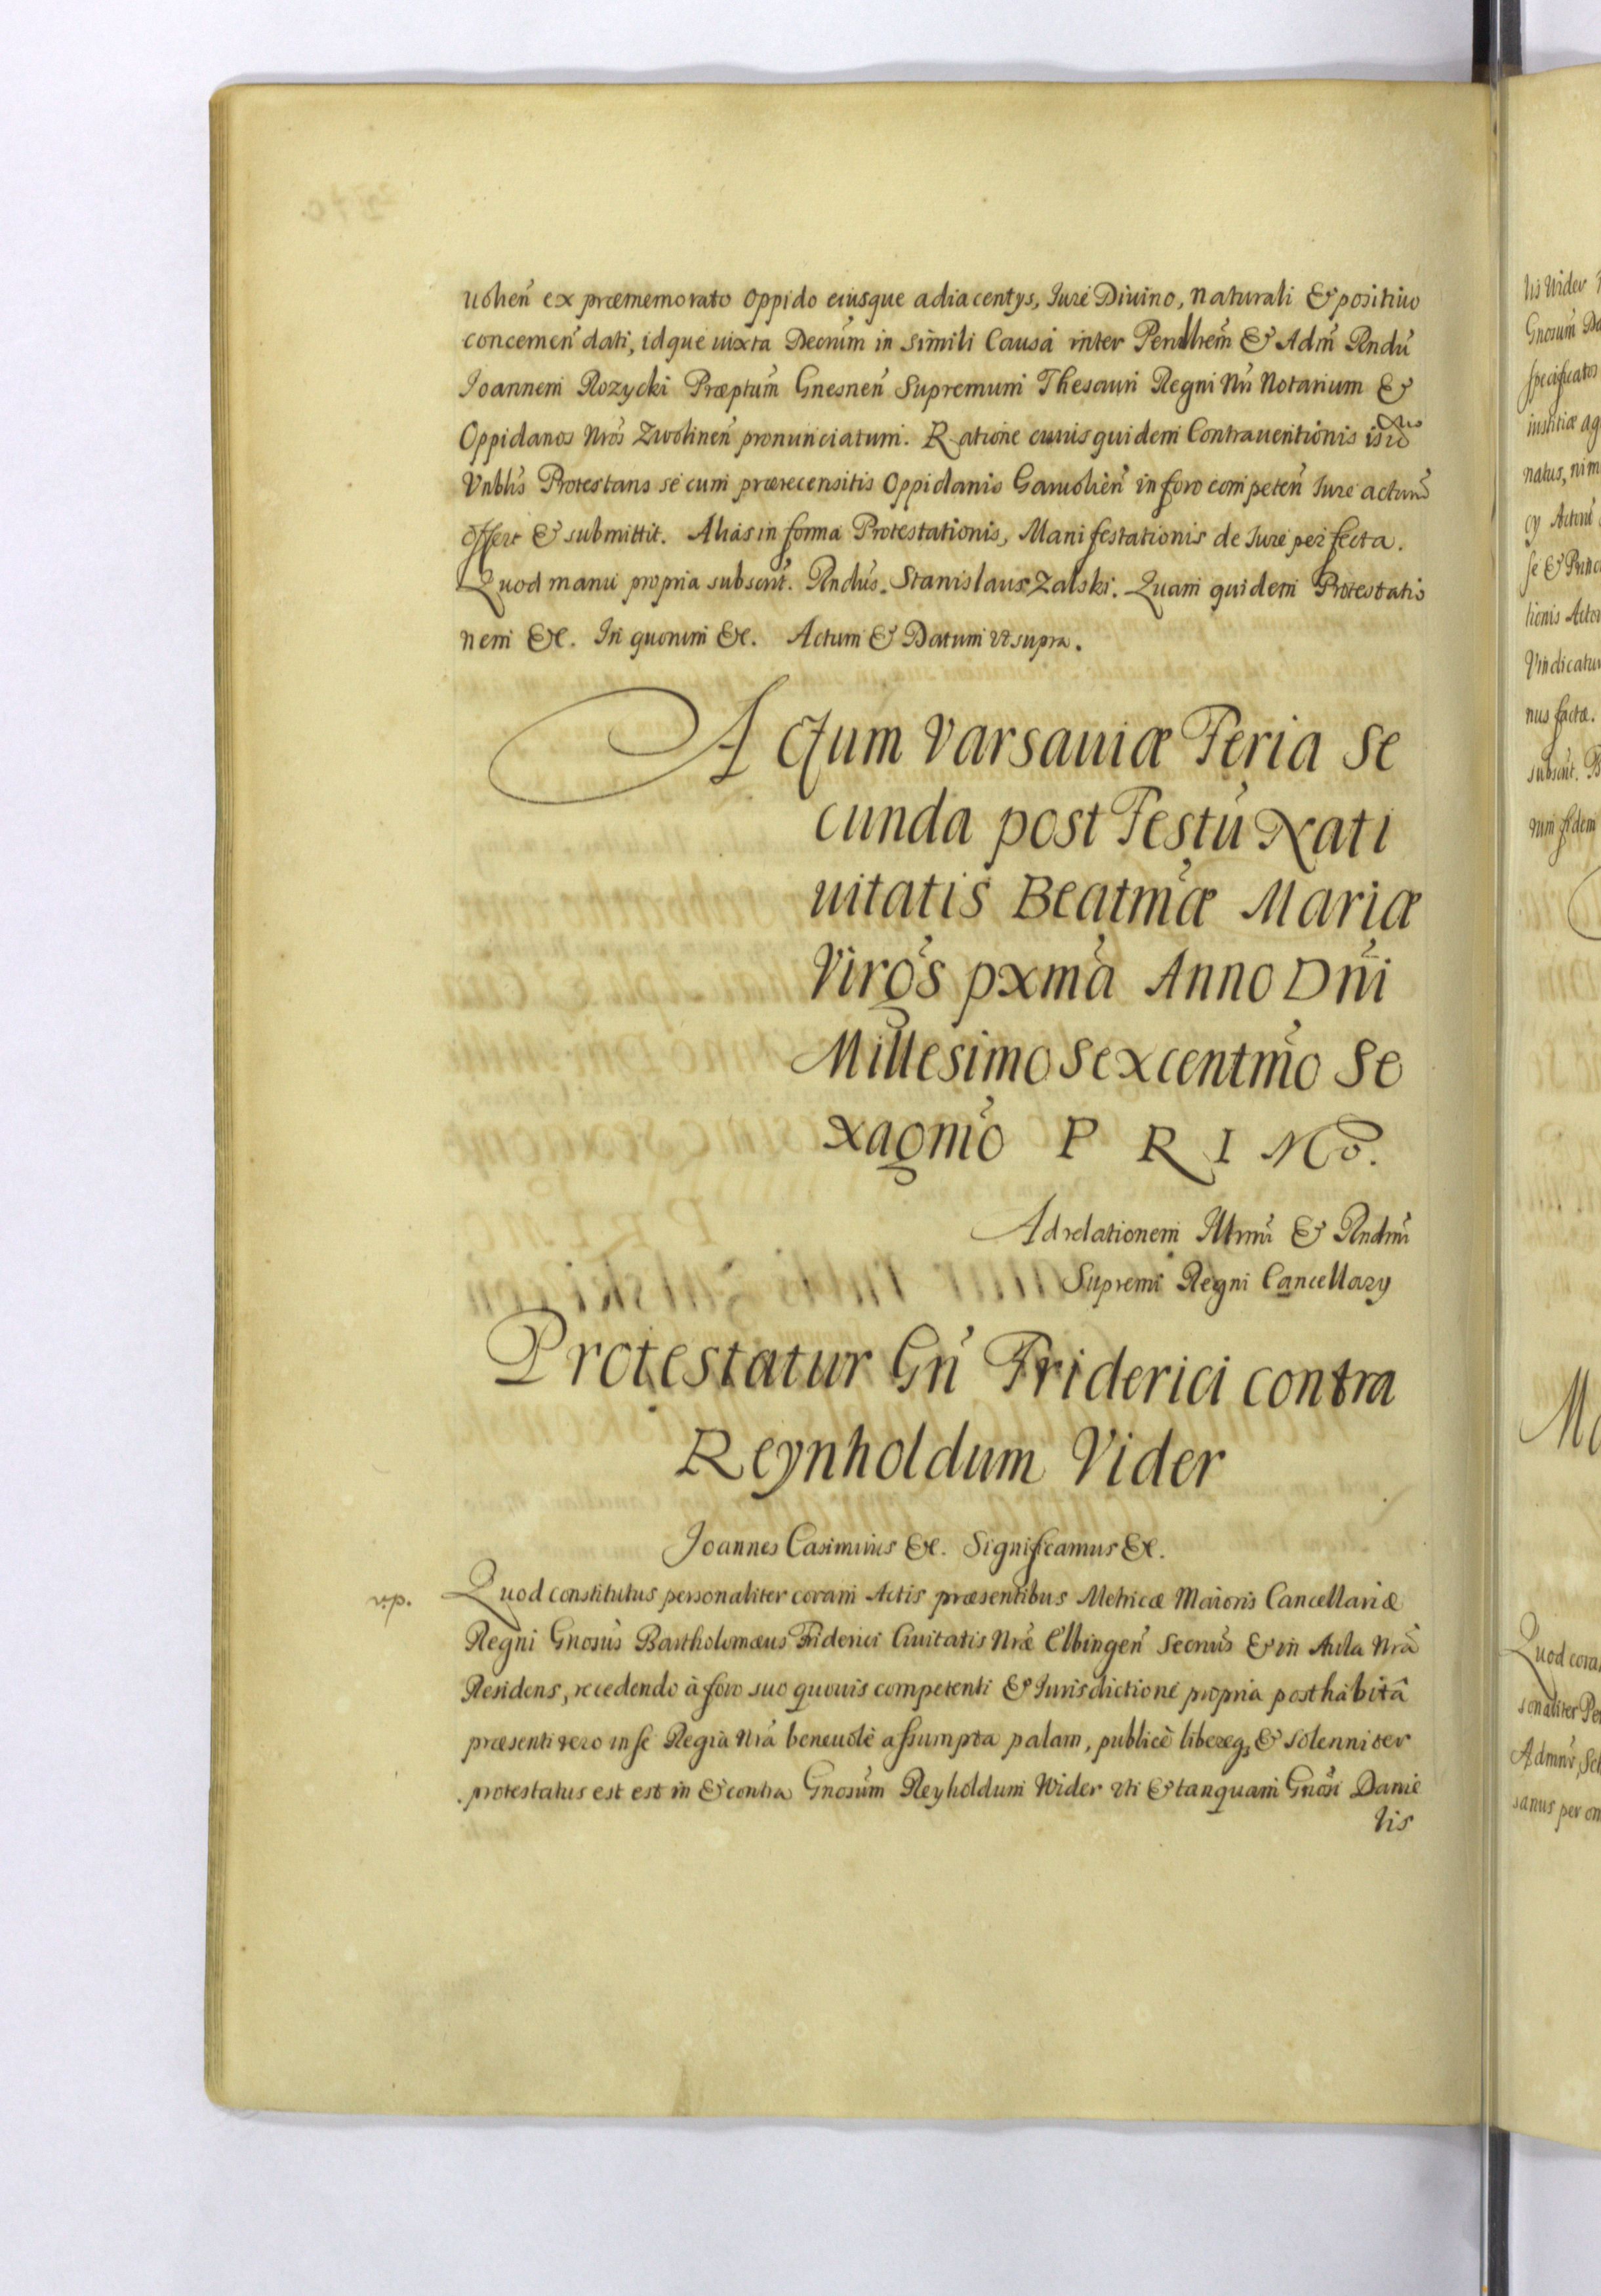 uolien̄ ex præmemorato oppido eiusque adiacentys, Iure Diuino, naturali & positiuo
concernen̄ dati, idque iuxta Decrūm in simili Causa inter Per & Adm̄ Rndū
Ioannem Rozycki Præptūm Gnesnen̄ Supremum Thesauri Regni Nri Notarium &
Oppidanos Nrōs Zwolinen̄ pronunciatum. Ratione cuius quidem Contrauentionis
Vnblis Protestans se cum prærecensitis Oppidanis Garuolien̄ in foro competen̄ Iure acturū
offert & submittit. Alias in forma Protestationis, Manifestationis de Iure perfecta.
Quod manu propria subscrīt. Rndūs. Stanislaus Zalski. Quam quidem Protestatio
nem &c. In quorum &c. Actum & Datum vt supra.
Actum Varsauiæ Feria Se
cunda post Festū Nati
uitatis Beatmæ Mariæ
Virgs pxma Anno Dn̄i
Millesimo Sexcentmo Se
xagmo P R I Mo.
Ad relationem Illrmi & Rndmi
Supremi Regni Cancellary
Protestatur Gn̄ Friderici contra
Reynholdum Vider
Ioannes Casimirus &c. Significamus &c.
Quod constitutus personaliter coram Actis præsentibus Metricæ Maioris Cancellariæ
Regni Gnosūs Bartholomæus Friderici Ciuitatis Nræ Elbingen̄ Secrius & in Aula Nra
Residens, recedendo à foro suo quouis competenti & Iurisdictione propria posthabitâ
præsenti vero in se Regia Nra beneuolè assumpta palam, publicè libereq, & solenniter
protestatus est est in & contra Gnosūm Reyholdum Wider vti & tanquam Gnosi Danie
lis